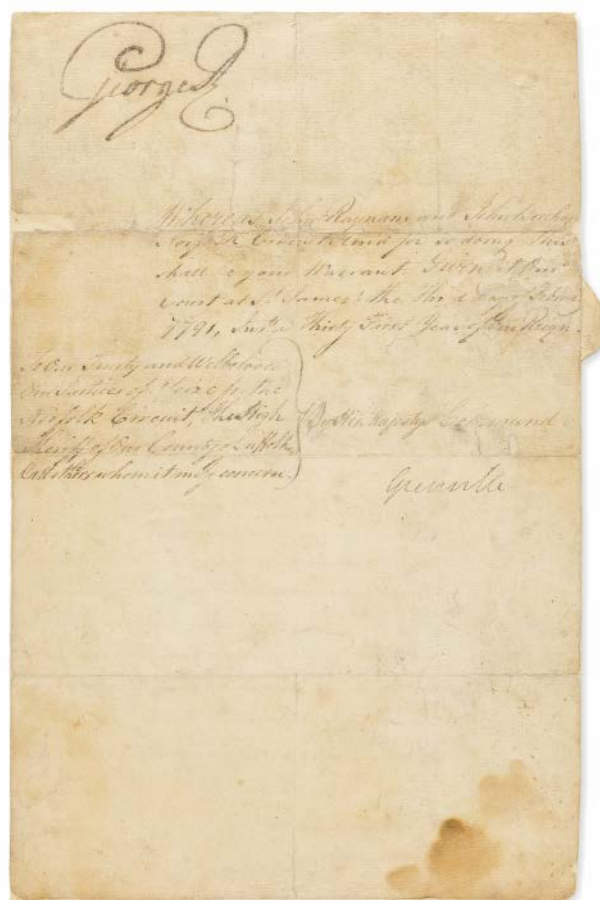 George R
Whereas John Raynam and John
Norfolk Circuit And for so doing this
shall be your Warrant. Given at Our
Court at St. James's the third day of
1791, In the Thirty First Year of Our Reign.
To Our Trusty and Welbeloved
Our Justices of Assize for the
Norfolk Circuit, The High
Sheriff of Our County of Suffolk
whom it may concern.
By His Majesty's Command
Grenville